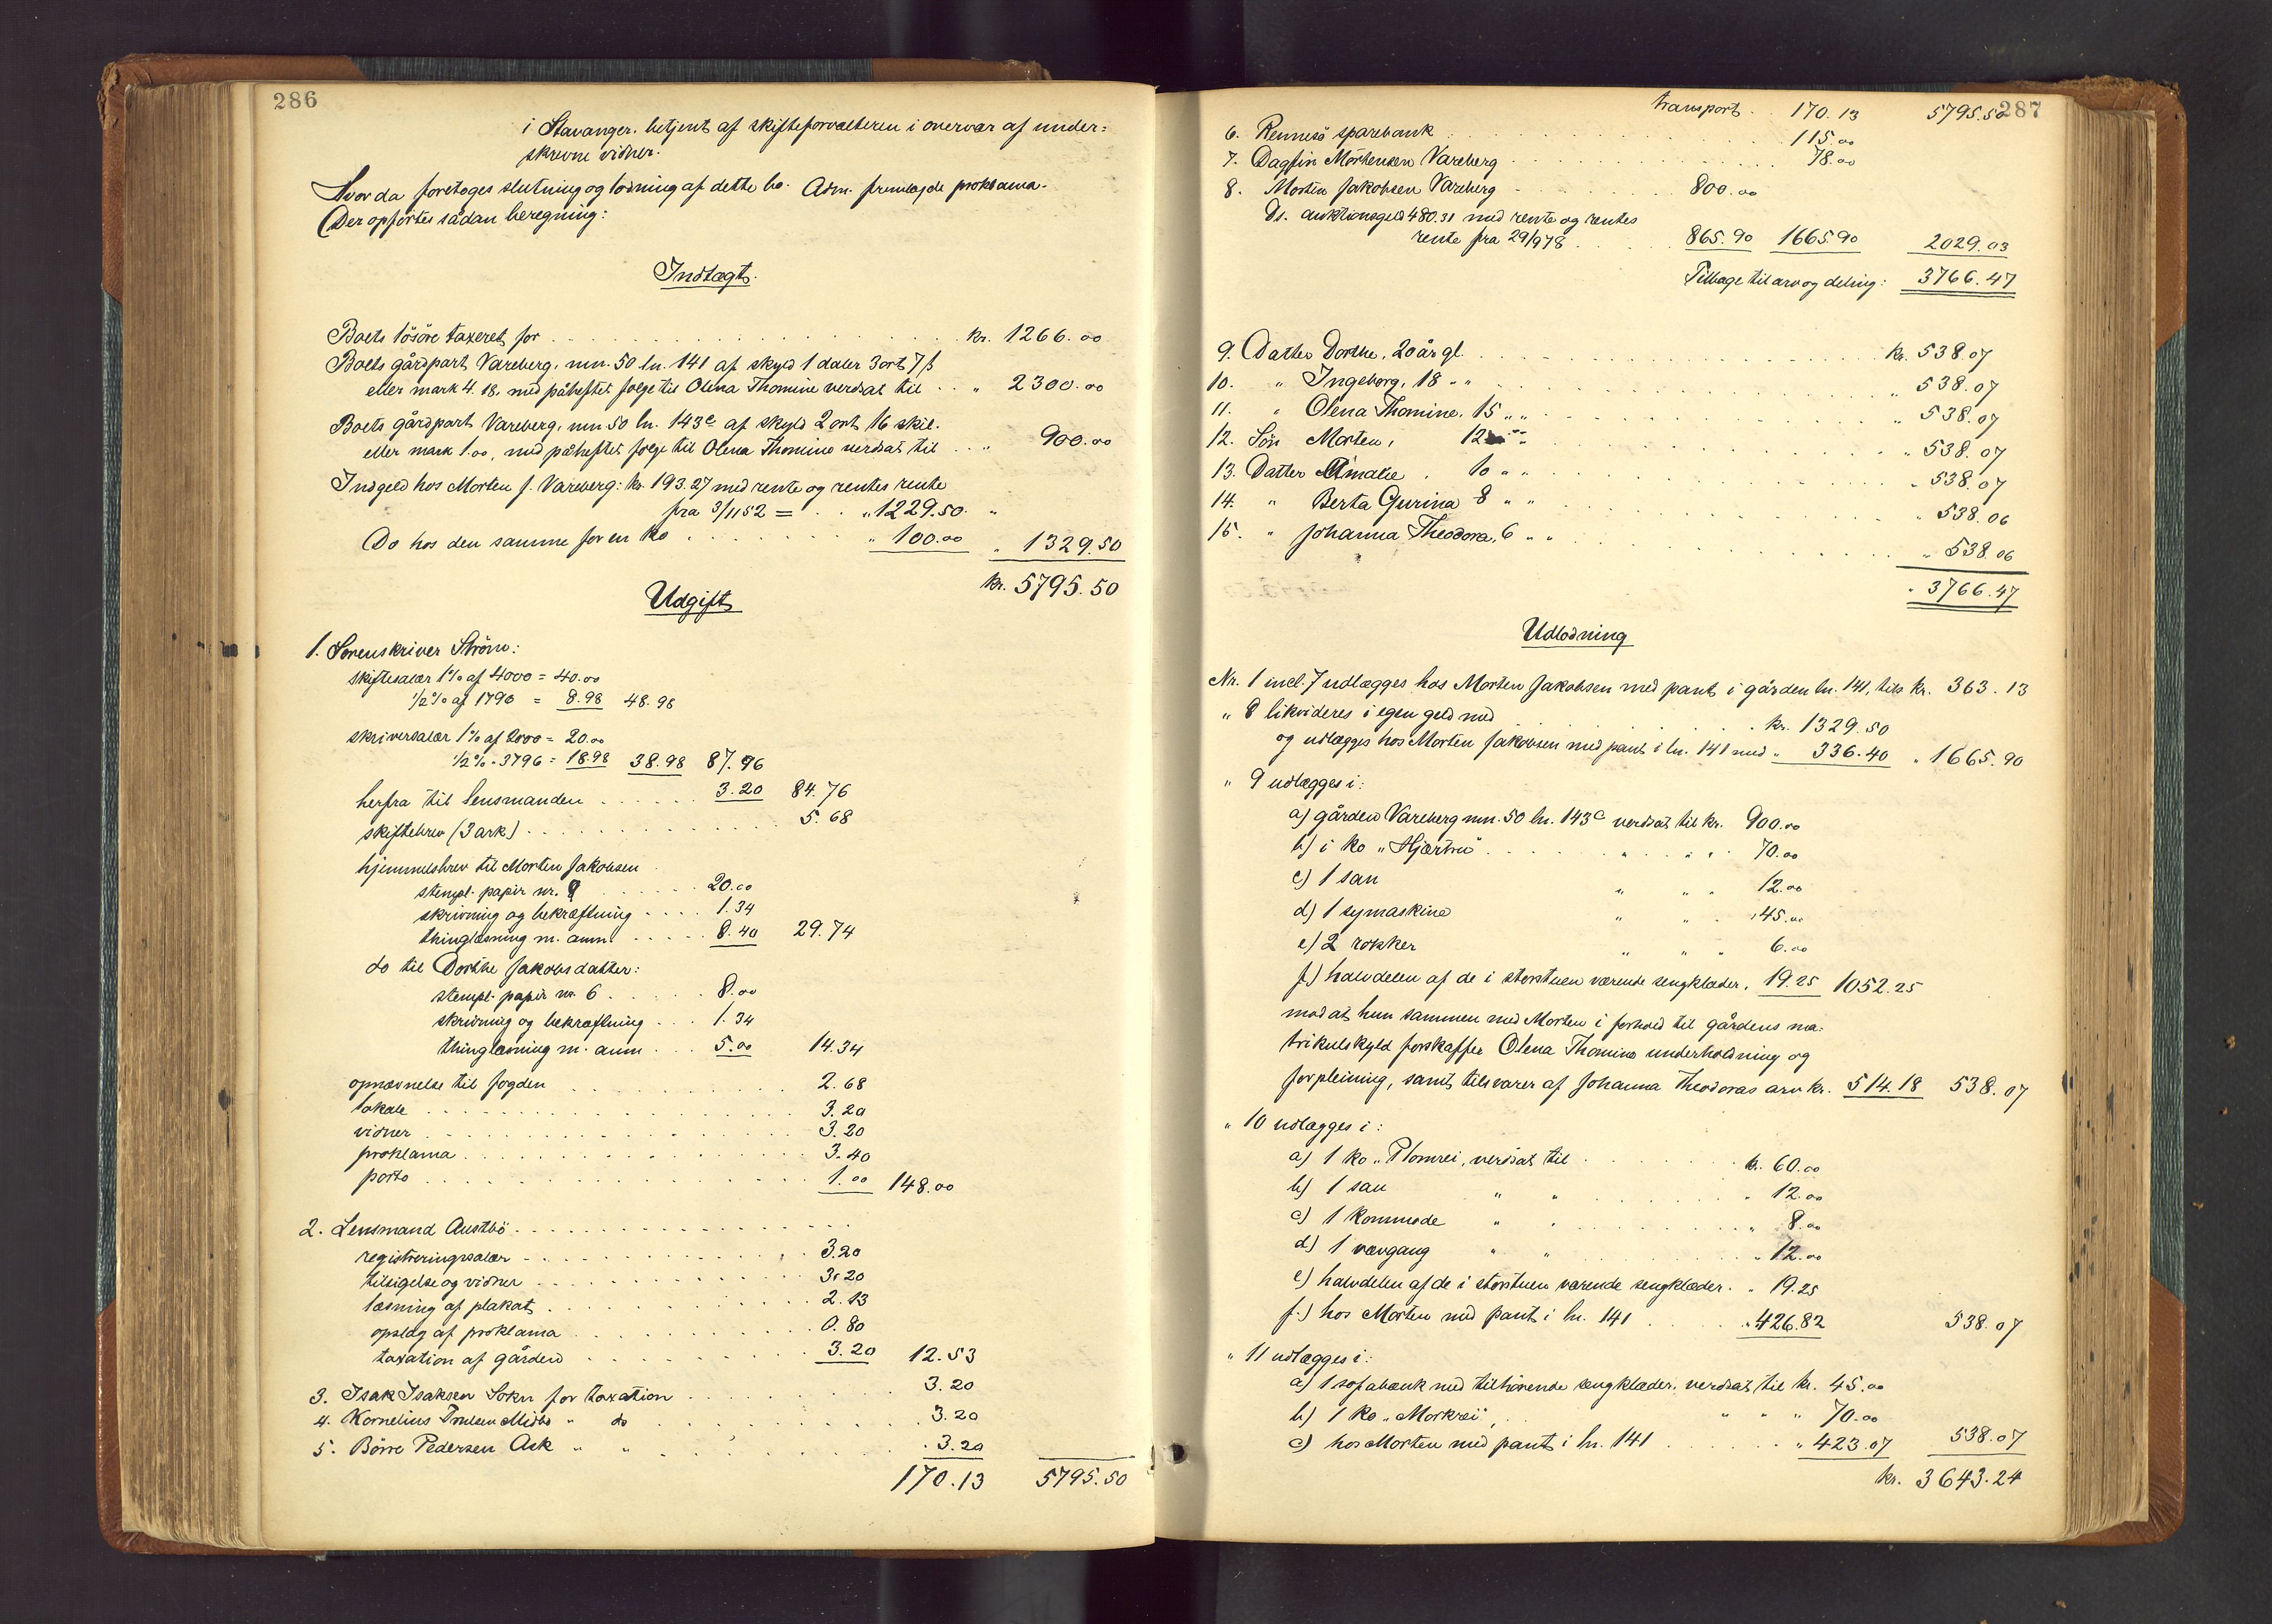 286
i Stavanger. betjent af skifteforvalteren i overvær af under=
skrevne vidner.
Hvor da foretoges slutning og lodning af dette bo. Adm. fremlagde proklama.
Der opförtes sådan beregning:
Indtægt.
Boets lösöre taxeret for . . . kr. 1266.00
Boets gårdpart Vareberg, mn. 50 ln. 141 af skyld 1 daler 3 ort 7 ß
eller mark 4.18, med påheftet folge til Olena Thomine verdsat til . . " 2300.00
Boets gårdpart Vareberg, mn 50 ln. 143c af skyld 2 ort 16 skil.
eller mark 1.00, med påheftet folge til Olena Thomine verdsat til . . " 900.00
Indgeld hos Morten J. Vareberg: kr. 193.27 med rente og rentes rente
fra 3/11 52 = . . " 1229.50. "
Do hos den samme for en ko . . . " 100.00 " 1329.50
kr. 5795.50
Udgift
1. Sorenskriver Ström:
skiftesalær 1% af 4000 = 40.00
1/2% af 1796 = 8.98 48.98
skriversalær 1% af 2000 = 20.00
1/2% " 3796 = 18.98 38.98 87.96
herfra til lensmanden . . . 3.20 84.76
skiftebrev (3 ark) . . . 5.68
hjemmelsbrev til Morten Jakobsen
stempl. papir nr. 9 . . . 20.00
skrivning og bekræftning . . . 1.34
thinglæsning m. anm. . . . 8.40 29.74
do til Dorthe Jakobsdatter:
stempl. papir nr. 6 . . . 8.00
skrivning og bekræftning . . . 1.34
thinglæsning m. anm . . . 5.00 14.34
opnævnelse til fogden . . . 2.68
lokale . . . 3.20
vidner . . . 3.20
proklama . . . 3.40
porto . . . 1.00 148.00
2. Lensmand Austbö . . .
registreringssalær . . . 3.20
tilsigelse og vidner . . . 3.20
læsning af plakat . . . 2.13
opslag af proklama . . . 0.80
taxation af gården . . . 3.20 12.53
3. Isak Isaksen Sokn for taxation . . . 3.20
4. Kornelius Midbö " do . . . 3.20
5. Börre Pedersen Ask " " . . . 3.20
170.13 5795.50
287
transport . 170.13 5795.50
6. Rennesö sparebank . . . 115.00
7. Dagfin Mörthensen Vareberg . . . 78.00
8. Morten Jakobsen Vareberg . . . 800.00
Ds. auktionsgeld 480.31 med rente og rentes
rente fra 29/9 78 . . . 865.90 1665.90 2029.03
Tilbage til arv og deling: 3766.47
9. Datter Dorthe, 20 år gl. . . . kr. 538.07
10. " Ingeborg, 18 " " . . . " 538.07
11. " Olena Thomine, 15 " " . . . " 538.07
12. Sön Morten, 12 " " . . . " 538.07
13. Datter Amalie, 10 " " . . . " 538.07
14. " Berta Gurina 8 " " . . . " 538.06
15. " Johanna Theodora, 6 " " . . . " 538.06
" 3766.47
Udlodning
Nr. 1 incl. 7 udlægges hos Morten Jakobsen med pant i gården ln. 141, tils kr. 363.13
" 8 likvideres i egen geld med . . . kr. 1329.50
og udlægges hos Morten Jakobsen med pant i ln. 141 med " 336.40 " 1665.90
" 9 udlægges i:
a) gården Vareberg mn. 50 ln. 143c verdsat til kr. 900.00
b) 1 ko "Hjærtrei" . . . " " " 70.00
c) 1 sau " " " 12.00
d) 1 symaskine " " " 45.00
e) 2 rokker " " " 6.00
f) halvdelen af de i storstuen værende sengklæder, 19.25 1052.25
mod at hun sammen med Morten i forhold til gårdens ma=
trikulskyld forskaffer Olena Thomine underholdning og
forpleining, samt tilsvarer af Johanna Theodoras arv kr. 514.18 538.07
" 10 udlægges i:
a) 1 ko "Plomrei, verdsat til . . . kr. 60.00
b) 1 sau " " . . . " 12.00
c) 1 kommode " " . . . " 8.00
d) 1 vævgang " " . . . " 12.00
e) halvdelen af de i storstuen værende sengklæder. " 19.25
f.) hos Morten med pant i ln. 141 . . . " 426.82 538.07
" 11 udlægges i:
a) 1 sofabænk med tilhörende sengklæder, verdsat til kr. 45.00
b) 1 ko "Morkrei", . " " " 70.00
c) hos Morten med pant i ln. 141 . . . " 423.07 538.07
kr. 3643.24